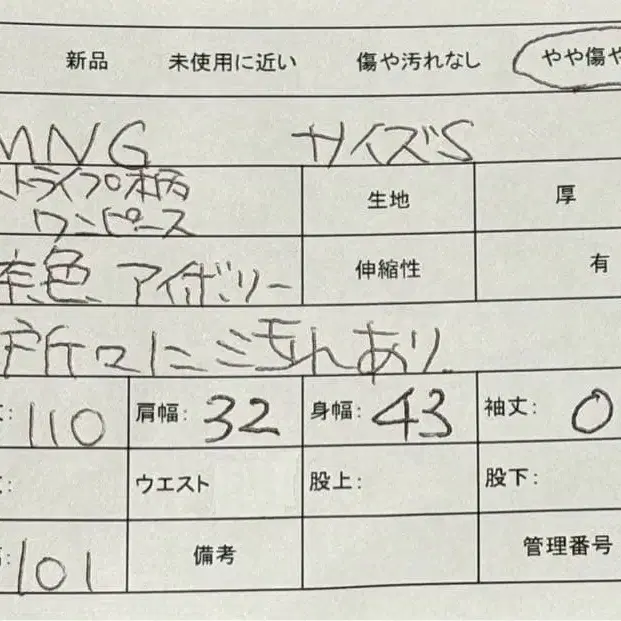 新品 未使用に近い 傷や汚れなし やや傷や
MNG サイズS
ストライプ柄 生地 厚
ワンピース
茶色 アイボリー 伸縮性 有
所々に汚れあり
110 肩幅: 32 身幅: 43 袖丈: 0
ウエスト 股上: 股下:
101 備考 管理番号